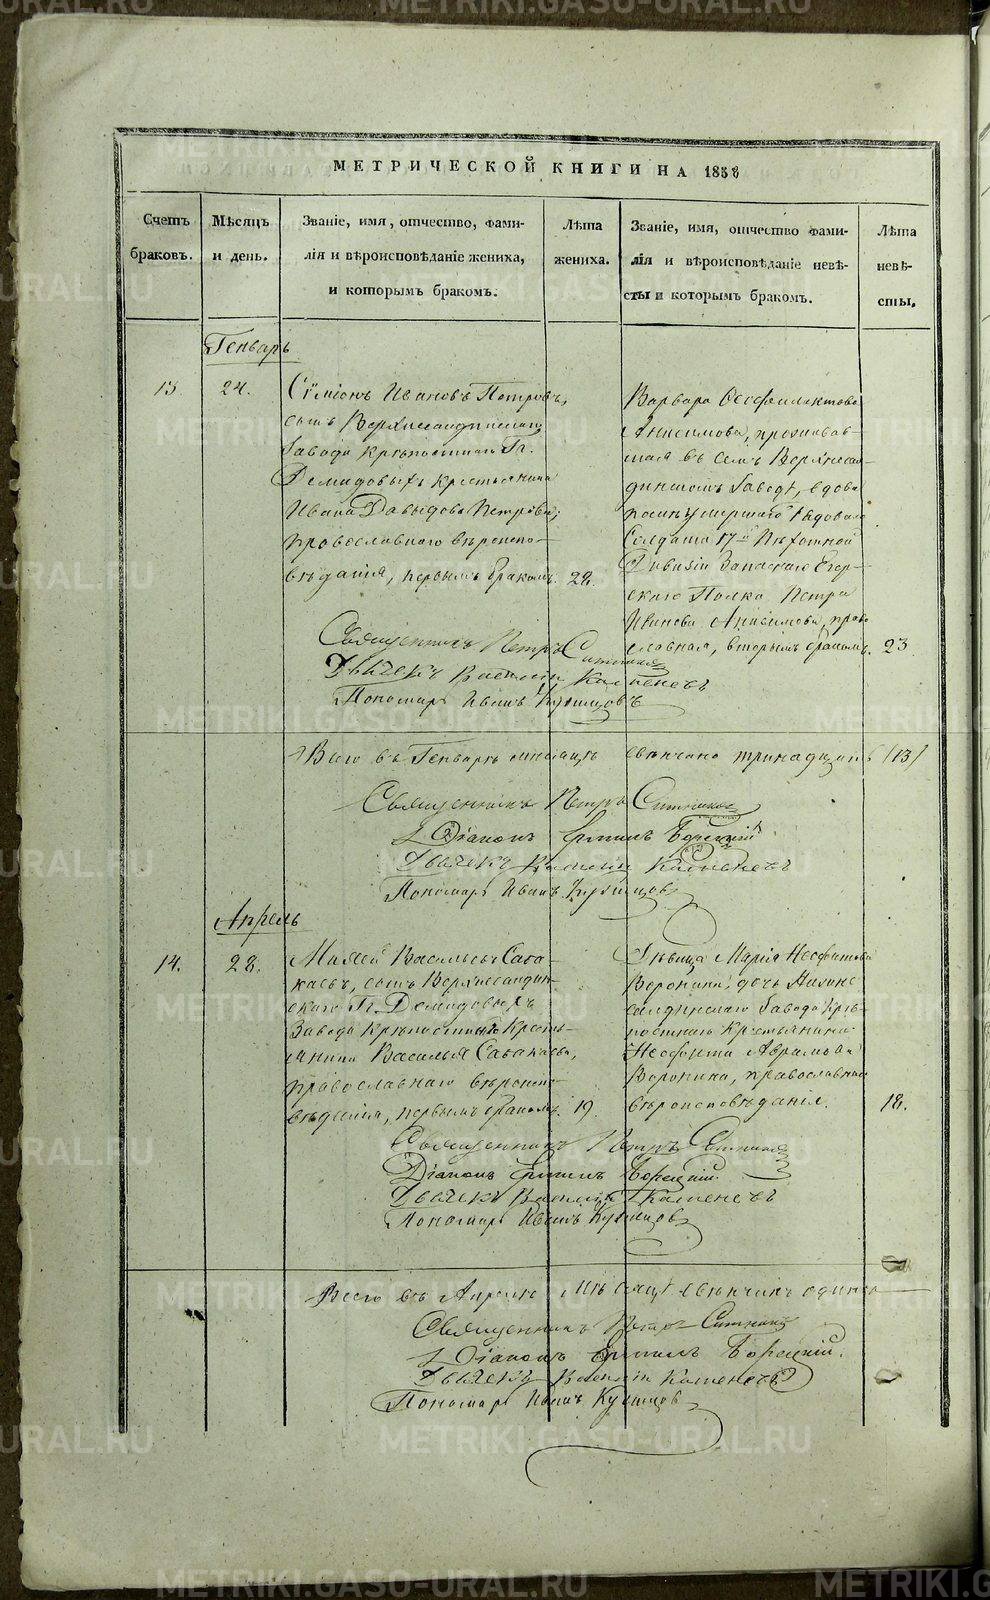 МЕТРИЧЕСКОЙ КНИГИ НА 1858
Счетъ
браковъ.
Мѣсяцъ
и день.
Званіе, имя, отчество, фами-
лія и вѣроисповѣданіе жениха,
и которымъ бракомъ.
Лѣта
жениха.
Званіе, имя, отчество фами-
лія и вѣроисповѣданіе невѣ-
сты и которымъ бракомъ.
Лѣта
невѣ-
сты.
Генварь
13
24.
Симіонъ Ивановъ Петровъ,
сынъ Верхнесалдинскаго
Завода крѣпостнаго Гг.
Демидовыхъ крестьянина
Ивана Давыдова Петрова;
православнаго вѣроиспо-
вѣданія, первымъ бракомъ.
22.
Варвара Феофилактова
Анисимова, прожива-
шая въ семъ Верхнесал-
динскомъ Заводѣ, вдова
Солдата 17й Пѣхотной
Дивизіи Запаснаго Егер-
скаго Полка Петра
Иванова Анисимова, право
славная, вторымъ бракомъ.
23
Священникъ Петръ Ситников
Дьячекъ Василій Каменевъ
Пономарь Иванъ Кузнецовъ
Всего въ Генварѣ месяцѣ свѣнчано тринадцать (13)
Священникъ Петръ Ситников
Діаконъ Ермилъ Борецкій
Дьячекъ Василій Каменевъ
Пономарь Иванъ Кузнецовъ
Апрель
14.
28.
Васильевъ Саба-
каевъ, сынъ Верхнесалдин-
скаго Гг. Демидовыхъ
Завода крѣпостнаго Кресть-
янина Василья Сабакаева,
православнаго вѣроиспо-
вѣданія, первымъ бракомъ.
19.
Дѣвица Марія Неофитова
Воронина, дочь Нижне
салдинскаго Завода Крѣ-
постнаго Крестьянина
Неофита Аврамова
Воронина, православнаго
вѣроисповѣданія.
18.
Священникъ Петръ Ситников
Діаконъ Ермилъ Борецкій
Дьячекъ Василій Каменевъ
Пономарь Иванъ Кузнецовъ
Всего въ Апрелѣ Мѣсяцѣ свѣнчанъ одинъ
Священникъ Петръ Ситников
Діаконъ Ермилъ Борецкій.
Дьячекъ Василій Каменевъ
Пономарь Иванъ Кузнецовъ
METRIKI.GASO-URAL.RU